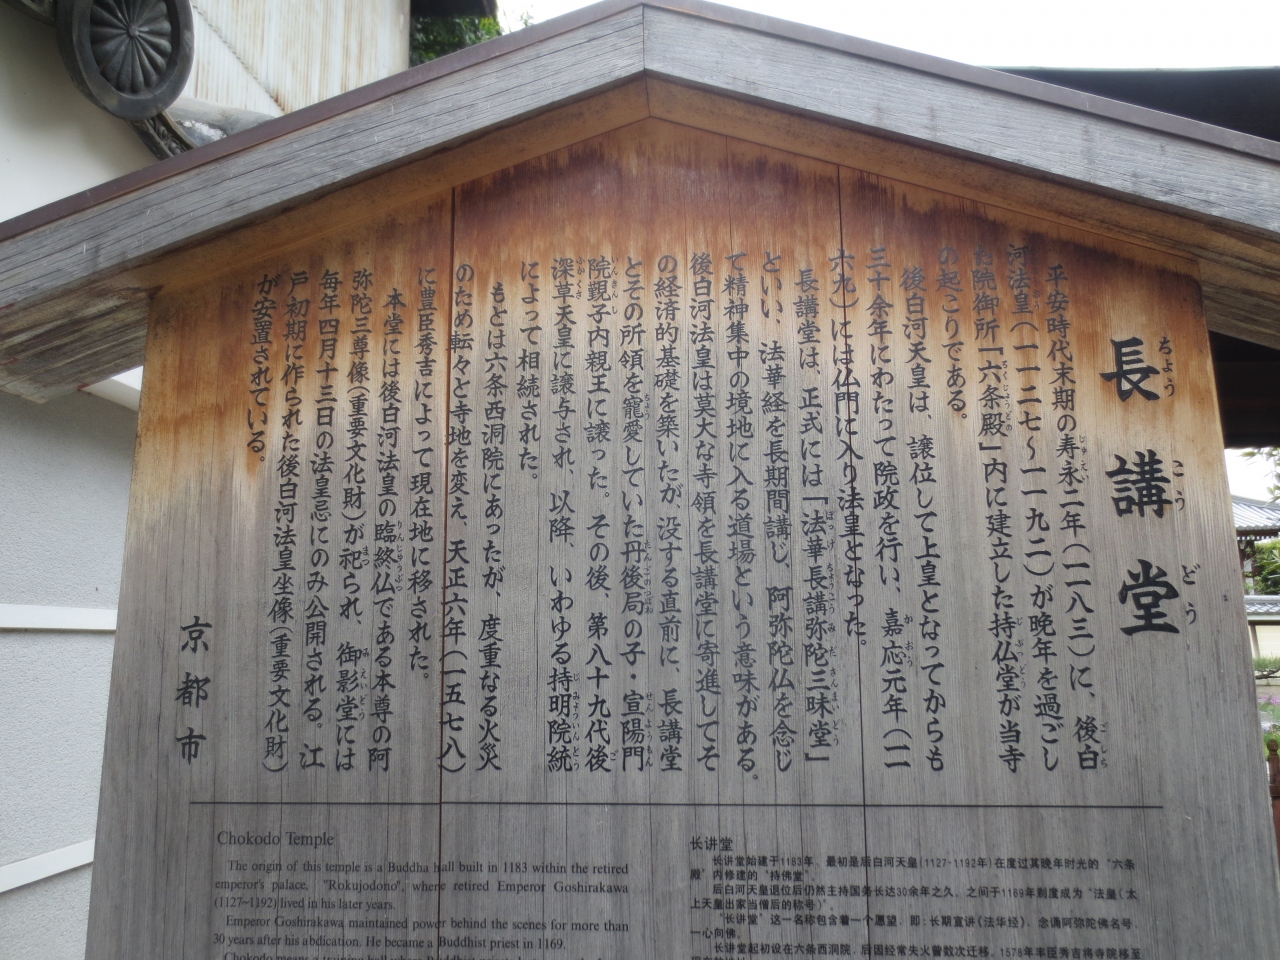 長講堂
ちょうこうどう
平安時代末期の寿永二年（一一八三）に、後白
河法皇（一一二七～一一九二）が晩年を過ごし
た院御所「六条殿」内に建立した持仏堂が当寺
の起こりである。
後白河天皇は、譲位して上皇となってからも
三十余年にわたって院政を行い、嘉応元年（一一
六九）には仏門に入り法皇となった。
長講堂は、正式には「法華長講弥陀三昧堂」
といい、法華経を長期間講じ、阿弥陀仏を念じ
て精神集中の境地に入る道場という意味がある。
後白河法皇は莫大な寺領を長講堂に寄進してそ
の経済的基礎を築いたが、没する直前に、長講堂
とその所領を寵愛していた丹後局の子・宣陽門
院覲子内親王に譲った。その後、第八十九代後
深草天皇に譲与され、以降、いわゆる持明院統
によって相続された。
もとは六条西洞院にあったが、度重なる火災
のため転々と寺地を変え、天正六年（一五七八）
に豊臣秀吉によって現在地に移された。
本堂には後白河法皇の臨終仏である本尊の阿
弥陀三尊像（重要文化財）が祀られ、御影堂には
毎年四月十三日の法皇忌にのみ公開される。江
戸初期に作られた後白河法皇坐像（重要文化財）
が安置されている。
京都市
Chokodo Temple
The origin of this temple is a Buddha hall built in 1183 within the retired
emperor's palace, "Rokujodono", where retired Emperor Goshirakawa
(1127~1192) lived in his later years.
Emperor Goshirakawa maintained power behind the scenes for more than
30 years after his abdication. He became a Buddhist priest in 1169.
长讲堂
长讲堂始建于1183年，最初是后白河天皇(1127-1192年)在度过其晚年时光的“六条
殿”内修建的“持佛堂”。
后白河天皇退位后仍然主持国务长达30余年之久，之间于1169年剃度成为“法皇(太
上天皇出家当僧后的称号)”。
“长讲堂”这一名称包含着一个愿望，即：长期宣讲《法华经》，念诵阿弥陀佛名号，
一心向佛。
长讲堂起初设在六条西洞院，后因经常失火曾数次迁移，1578年丰臣秀吉将寺院移至